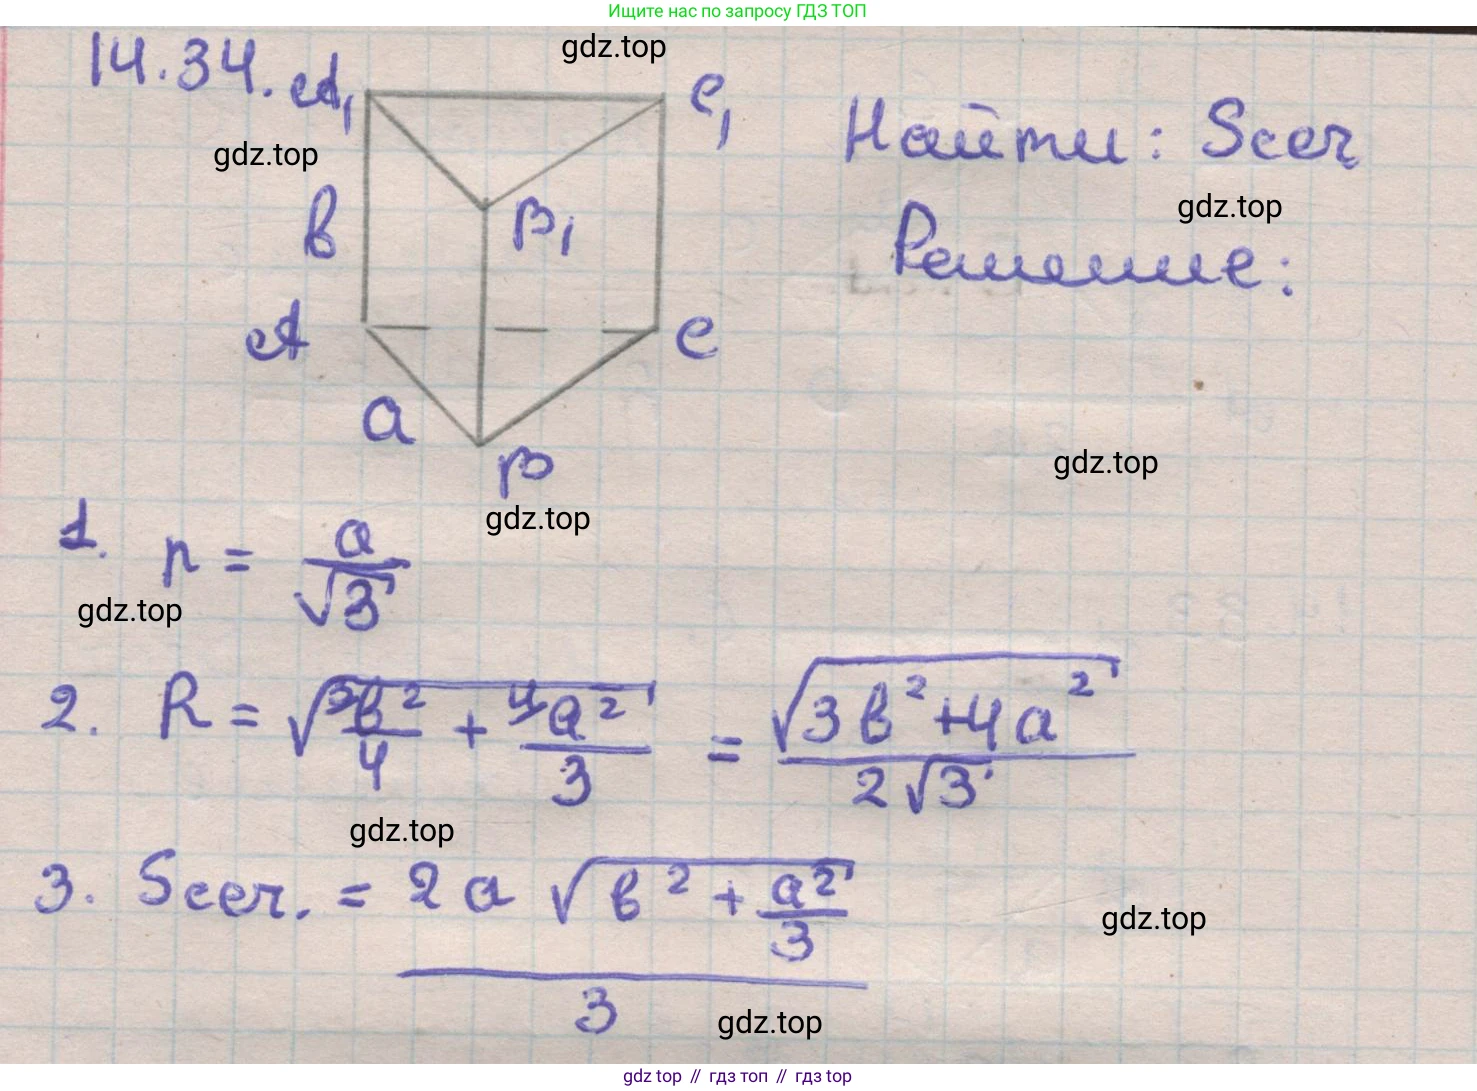 Ищите нас по запросу ГДЗ ТОП
gdz.top
14.34.
A₁
C₁
Найти: Sсеч
gdz.top
gdz.top
в
B₁
Решение:
A
C
a
B
gdz.top
gdz.top
1. r = a/√3
gdz.top
2. R = √(3в²/4 + 4a²/3) = √(3в²+4a²)/(2√3)
gdz.top
3. Sсеч. = 2a√(в² + a²/3)/3
gdz.top
gdz.top
gdz top // гдз топ // гдз top